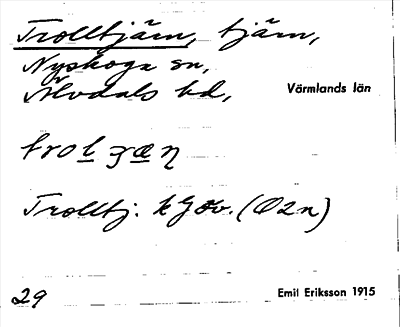 Trolltjärn, tjärn,
Nyskoga sn,
Älvdals hd,
Värmlands län
Trolltj: kföv. (Ö2n)
29
Emil Eriksson 1915